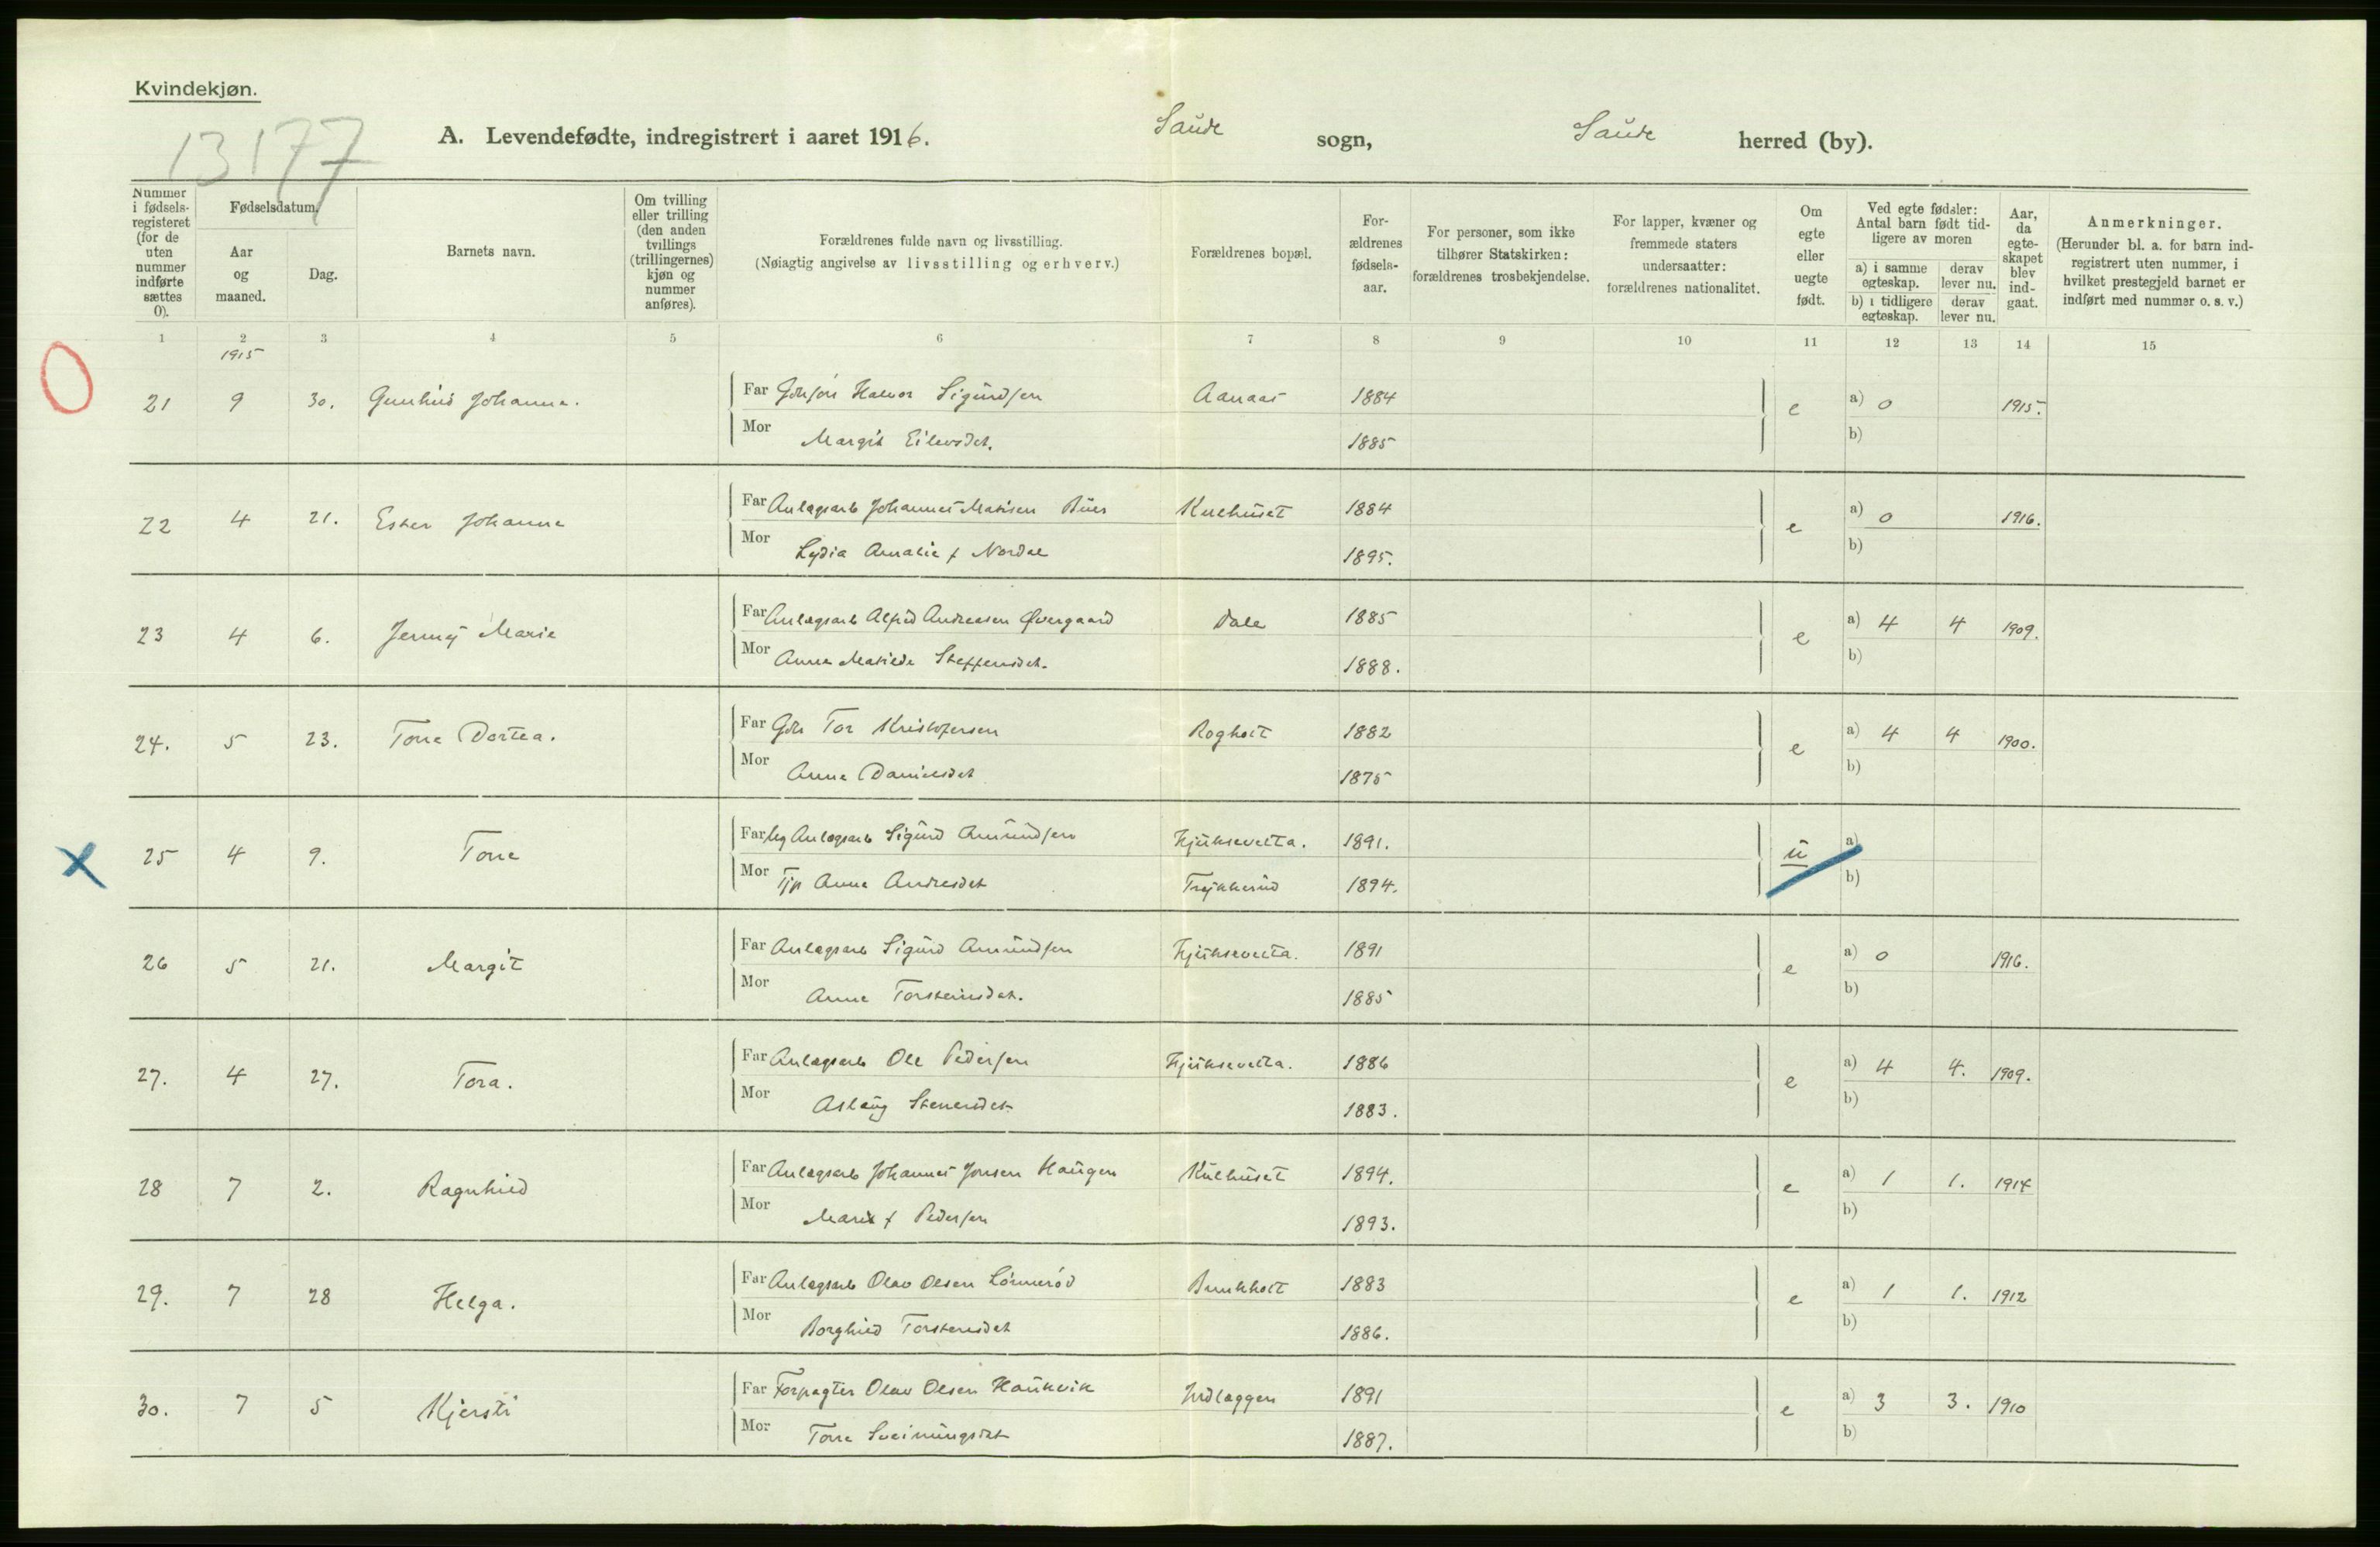 Kvindekjøn.
13177
A. Levendefødte, indregistrert i aaret 1916. Saude sogn, Saude herred (by).
Nummer i fødselsregisteret (for de uten nummer indførte sættes 0).
Fødselsdatum.
Aar og maaned.
Dag.
Barnets navn.
Om tvilling eller trilling (den anden tvillings (trillingernes) kjøn og nummer anføres).
Forældrenes fulde navn og livsstilling.
(Nøiagtig angivelse av livsstilling og erhverv.)
Forældrenes bopæl.
Forældrenes fødselsaar.
For personer, som ikke tilhører Statskirken: forældrenes trosbekjendelse.
For lapper, kvæner og fremmede staters undersaatter: forældrenes nationalitet.
Om egte eller uegte født.
Ved egte fødsler: Antal barn født tidligere av moren
a) i samme egteskap. derav lever nu.
b) i tidligere egteskap. derav lever nu.
Aar, da egteskapet blev indgaat.
Anmerkninger.
(Herunder bl. a. for barn indregistrert uten nummer, i hvilket prestegjeld barnet er indført med nummer o. s. v.)
1 2 3 4 5 6 7 8 9 10 11 12 13 14 15
1915
21 9 30. Gunhild Johanne. Far Halvor Sigurdsen Aanaas 1884 e a) 0 1915.
Mor Margit Eilevsdt. 1885 b)
22 4 21. Ester Johanne Far Anlægsarb Johannes Matisen Buer Kulhuset 1884 e a) 0 1916.
Mor Lydia Amalie f Nordal 1895. b)
23 4 6. Jenny Marie Far Anlægsarb Alfred Andreasen Øvergaard Dale 1885 e a) 4 4 1909.
Mor Anna Matilde Steffensdt. 1888. b)
24. 5 23. Tone Dortea. Far Gbr Tor Kristofersen Rogholt 1882 e a) 4 4 1900.
Mor Anne Danielsdt 1875 b)
25 4 9. Tone Far Ug Anlægsarb Sigurd Amundsen Hjuksevelta. 1891. u a)
Mor Tjp Anne Andresdt Trykkerud 1894. b)
26 5 21. Margit Far Anlægsarb Sigurd Amundsen Hjuksevelta. 1891 e a) 0 1916.
Mor Anne Torsteinsdt. 1885 b)
27. 4 27. Tora. Far Anlægsarb Ole Pedersen Hjuksevelta. 1886 e a) 4 4. 1909.
Mor Aslaug Stenersdt 1883. b)
28 7 2. Ragnhild Far Anlægsarb Johannes Jonsen Haugen Kulhuset 1894. e a) 1 1. 1914
Mor Marie f Pedersen 1893. b)
29. 7 28 Helga. Far Anlægsarb Olav Olsen Lønnerød Bunkholt 1883 e a) 1 1. 1912
Mor Borghild Torstensdt 1886. b)
30. 7 5 Kjersti Far Forpagter Olav Olsen Haukvik Indlæggen 1891 e a) 3 3. 1910
Mor Tone Sveinungsdt 1887. b)